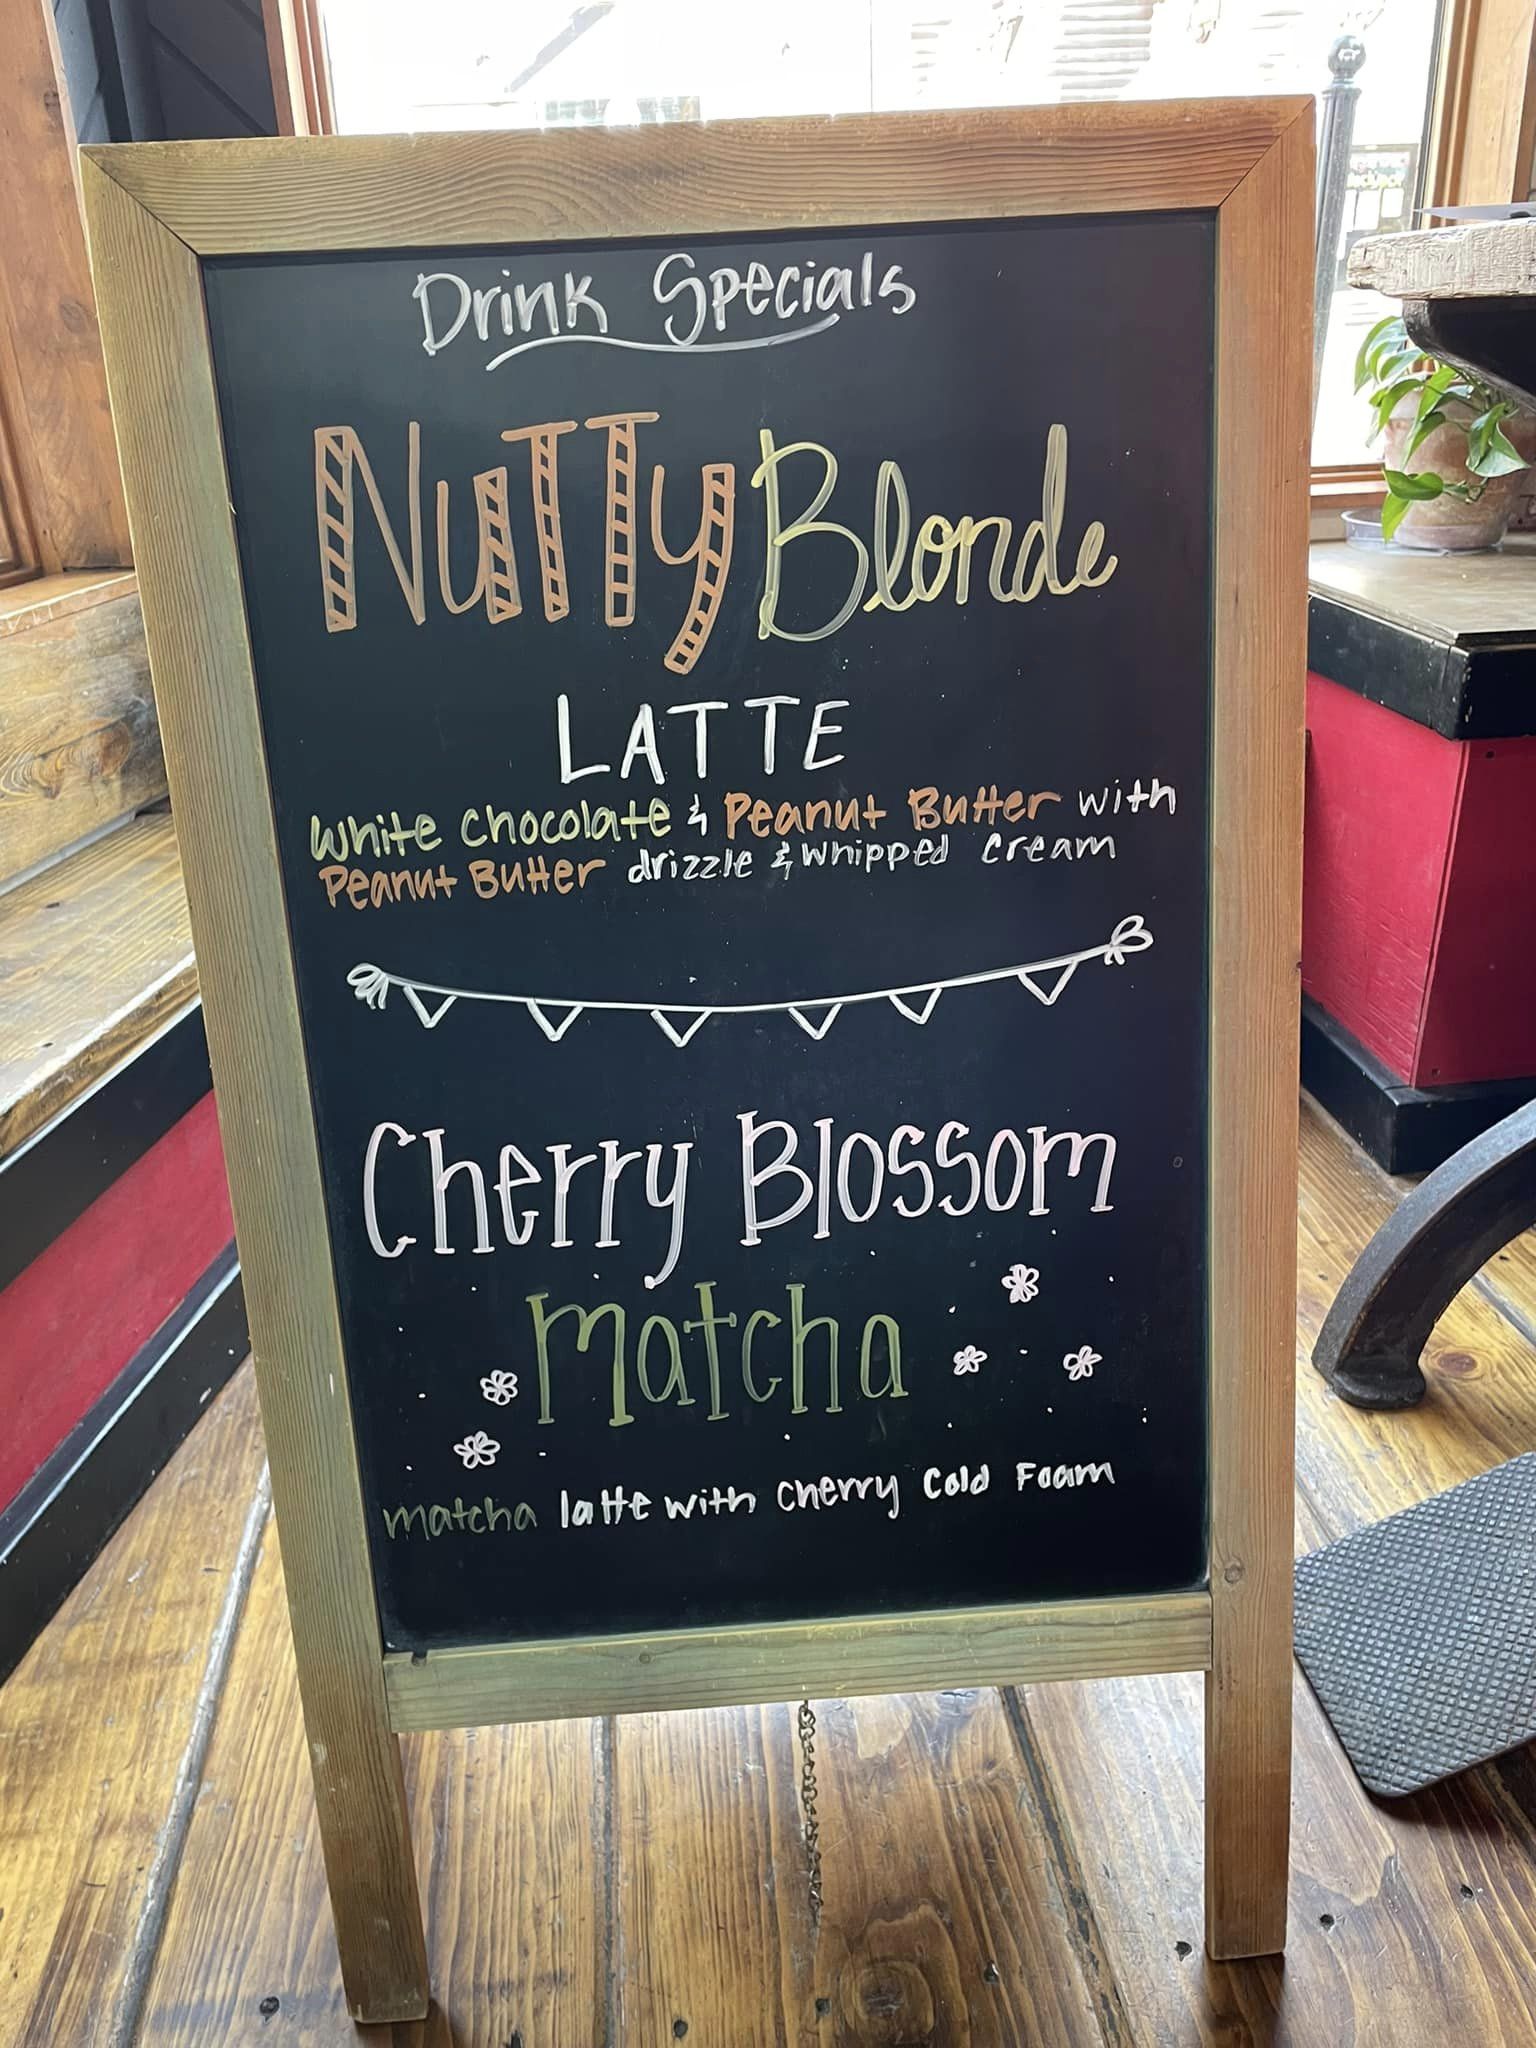 Drink Specials
Nutty Blonde
LATTE
White Chocolate & Peanut Butter with
Peanut Butter drizzle & Whipped Cream
Cherry Blossom
Matcha
matcha latte with Cherry Cold Foam